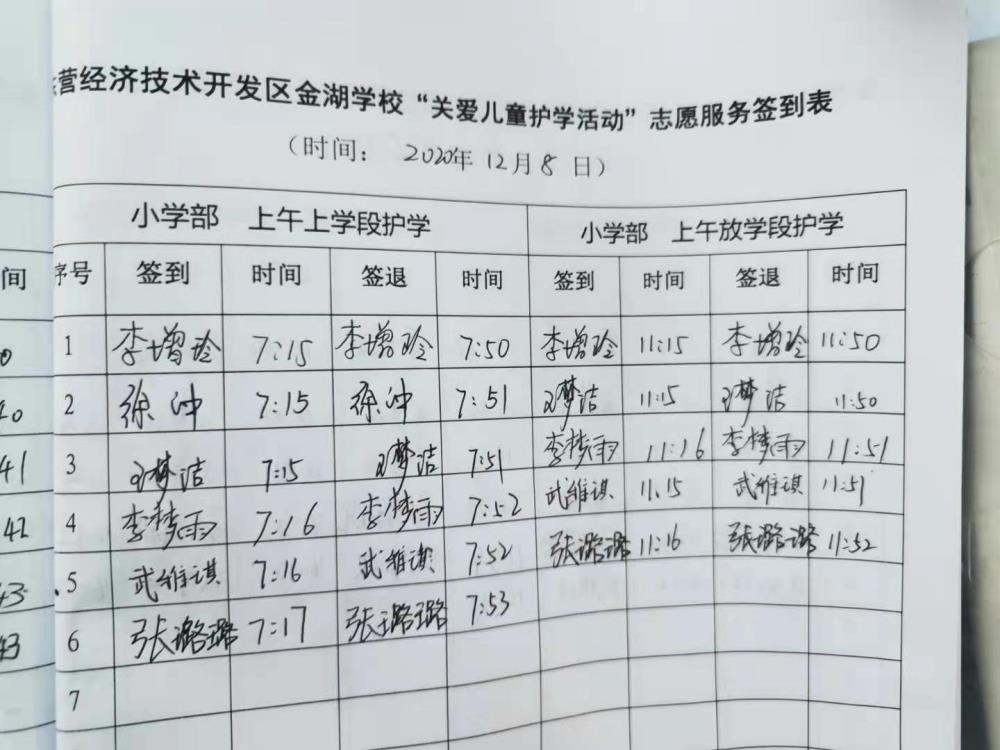 营经济技术开发区金湖学校“关爱儿童护学活动”志愿服务签到表
（时间： 2020年 12月 8 日）
小学部 上午上学段护学 小学部 上午放学段护学
间 序号 签到 时间 签退 时间 签到 时间 签退 时间
0 1 李增玲 7:15 李增玲 7:50 李增玲 11:15 李增玲 11:50
40 2 徐冲 7:15 徐冲 7:51 王梦洁 11:15 王梦洁 11:50
41 3 王梦洁 7:15 王梦洁 7:51 李梦雨 11:16 李梦雨 11:51
42 4 李梦雨 7:16 李梦雨 7:52 武维祺 11.15 武维祺 11:51
43 5 武维祺 7:16 武维祺 7:52 张璐璐 11:16 张璐璐 11:52
43 6 张璐璐 7:17 张璐璐 7:53
7